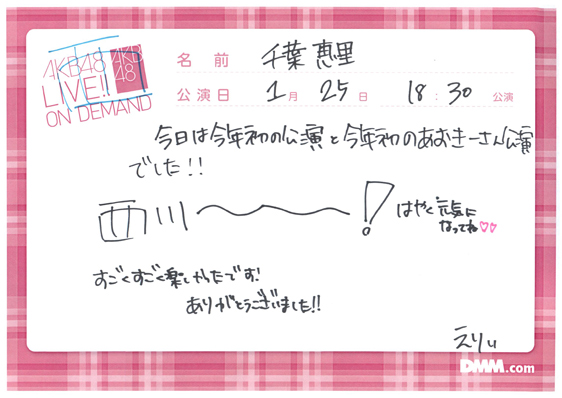 AKB48
LIVE!!
ON DEMAND
AKB
48
名前 千葉恵里
公演日 1月 25日 18:30 公演
今日は今年初の公演と今年初のあおきーさん公演
でした!!
西川〜〜! はやく元気に
なってね♡♡
すごくすごく楽しかったです!
ありがとうございました!!
えりい
DMM.com